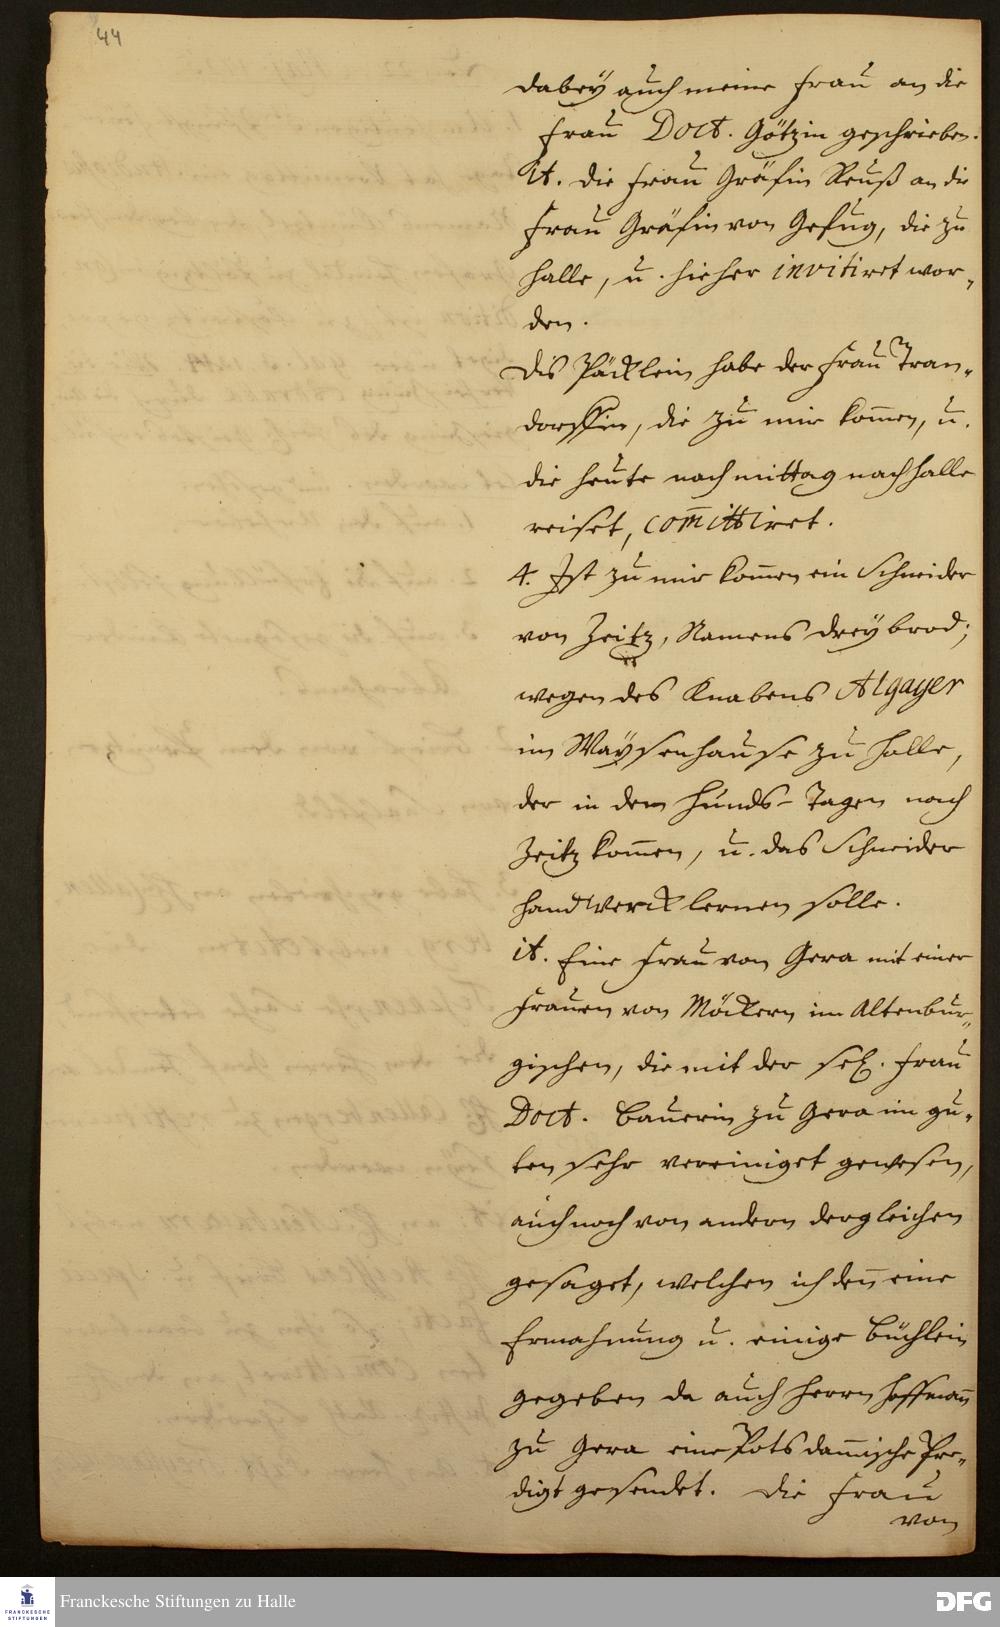 44
dabey auch meine Frau an die
Frau Doct. Götzin geschrieben.
It. die Frau Gräfin Reuß an die
Frau Gräfin von Gefug, die zu
Halle, u. hieher invitiret wor-
den.
Dis Päcklein habe der Frau Tran-
dorffin, die zu mir kom̄en, u.
die heute nach mittag nach Halle
reiset, com̄ittiret.
4. Ist zu mir kom̄en ein Schneider
von Zeitz, Namens Dreybrod;
wegen des Knabens Algayer
im Wäysenhause zu Halle,
der in den Hunds-Tagen nach
Zeitz kom̄en, u. das Schneider
Handwerck lernen solle.
it. Eine Frau von Gera mit einer
Frauen von Möckern im Altenbur-
gischen, die mit der sel. Frau
Doct. Bauerin zu Gera im gu-
ten sehr vereiniget gewesen,
auch noch von andern dergleichen
gesaget, welchen ich den̄ eine
Ermahnung u. einige Büchlein
gegeben da auch Herrn Hoffman̄
zu Gera eine Potsdam̄ische Pre-
digt gesendet. Die Frau
von
FRANCKESCHE
STIFTUNGEN
Franckesche Stiftungen zu Halle
DFG